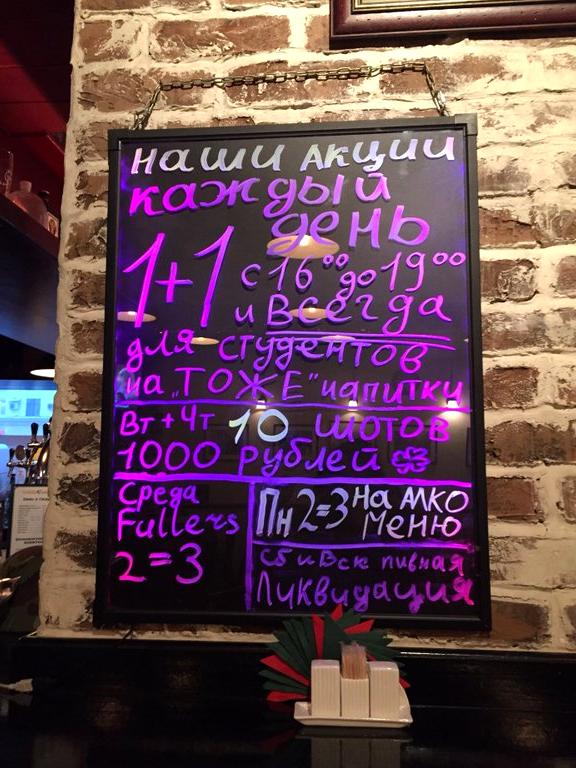 наши акции
каждый
день
1+1 с 16⁰⁰ до 19⁰⁰
и всегда
для студентов
на „ТОЖЕ" напитки
Вт + Чт 10 шотов
1000 рублей
Среда
Fullers
2=3
Пн 2=3 На АЛКО
МЕНЮ
Сб и Вск пивная
Ликвидация